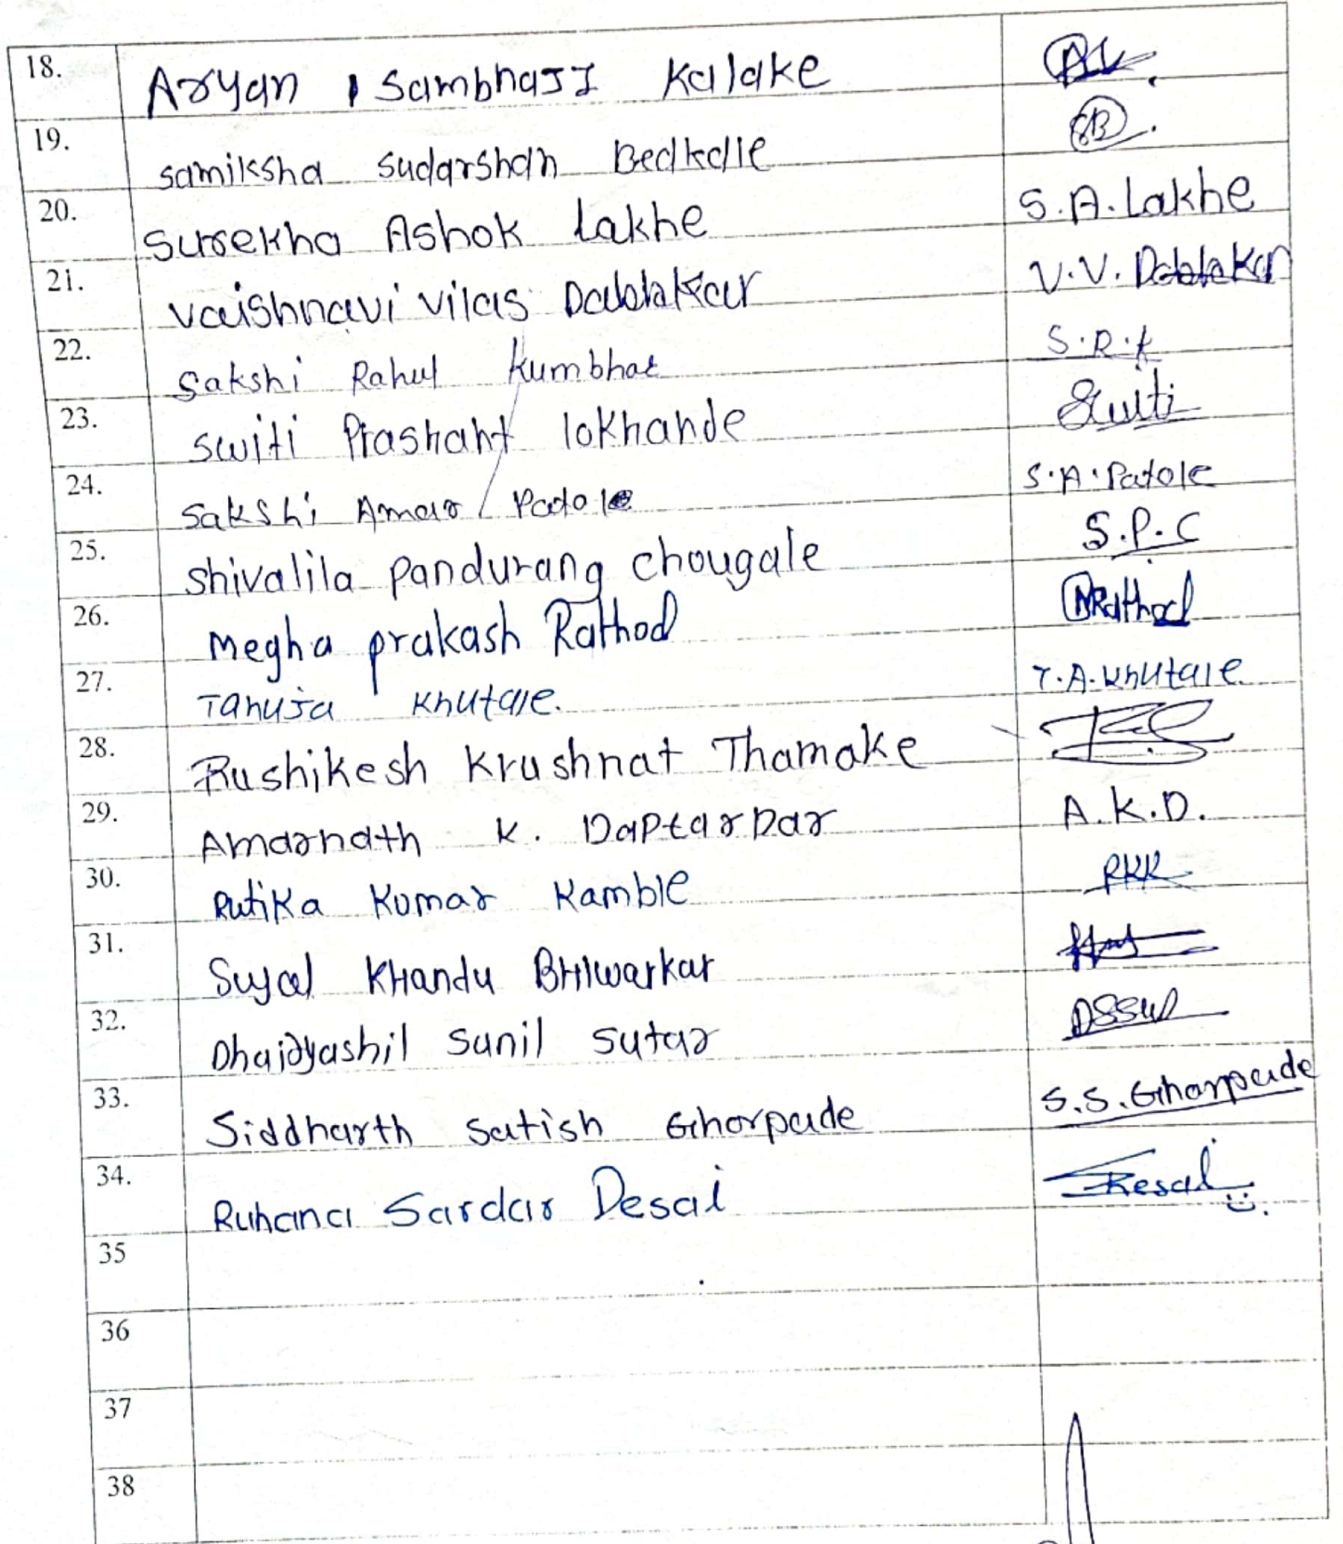 18. Aryan Sambhaji Kalake
19. Samiksha Sudarshan Bedkale SB.
20. Surekha Ashok Lakhe S.A.Lakhe
21. Vaishnavi Vilas Dablakar V.V. Dablakar
22. Sakshi Rahul Kumbhar S.R.K
23. Switi Prashant lokhande Switi
24. Sakshi Amar Patole S.A.Patole
25. Shivalila Pandurang chougale S.P.C
26. Megha prakash Rathod MRathod
27. Tanuja Khutale. T.A.Khutale
28. Rushikesh Krushnat Thamake
29. Amarnath K. Daptardar A.K.D.
30. Rutika Kumar Kamble RKK
31. Sujal KHandu BHilwarkar
32. Dhairyashil Sunil Sutar
33. Siddharth Satish Ghorpade S.S.Ghorpade
34. Ruhana Sardar Desai
35
36
37
38